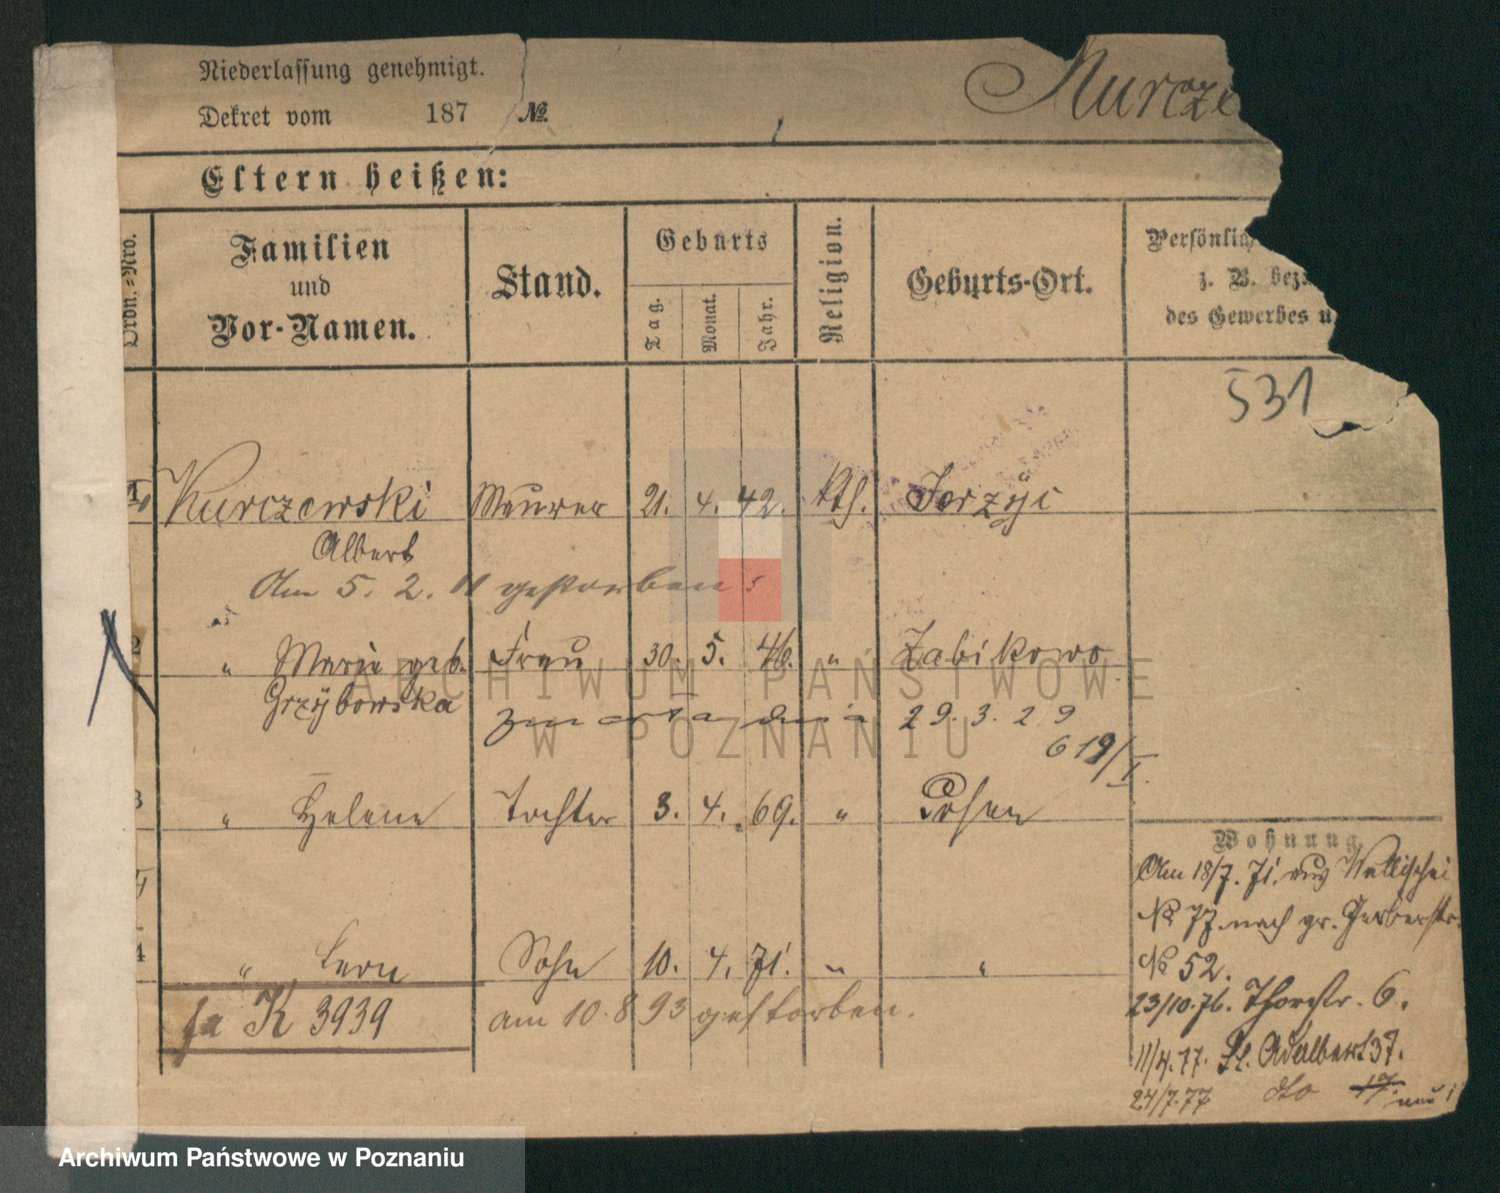 Niederlassung genehmigt.
Dekret vom 187 №
Kurcze
Eltern heißen:
Ordn.-Nro.
Familien und Vor-Namen.
Stand.
Geburts
Tag. Monat. Jahr.
Religion.
Geburts-Ort.
Persönlich
z. B. bez.
des Gewerbes u
531
1 Kurczewski Maurer 21. 4. 42. kth. Jerzÿc
Albert
Am 5. 2. 11 gestorben
2 " Marie geb. Frau 30. 5. 46. " Zabikowo
Grzÿbowska
zmarła dnia 29.3.29
619/I.
3 " Helene Tochter 3. 4. 69. " Posen
4 " Leon Sohn 10. 4. 71. " "
K 3939 am 10.8 93 gestorben.
Wohnung.
Am 18/7. 71. aus Wallischei
№ 77 nach gr. Gerberstr.
№ 52.
23/10.76. Thorstr. 6.
11/4.77. St. Adalbert 37.
24/7.77 dto 17.
ARCHIWUM PAŃSTWOWE
W POZNANIU
Archiwum Państwowe w Poznaniu